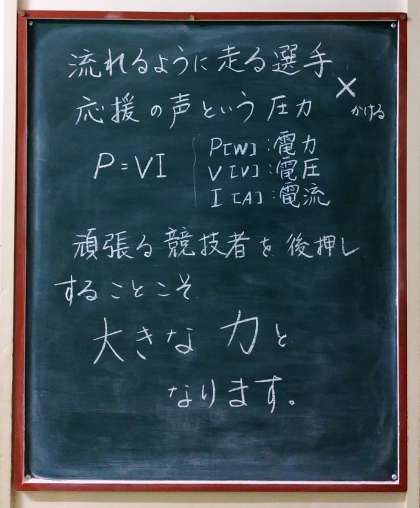 流れるように走る選手
×
かける
応援の声という圧力
P=VI
P[W]:電力
V[V]:電圧
I[A]:電流
頑張る競技者を後押し
することこそ
大きな力と
なります。